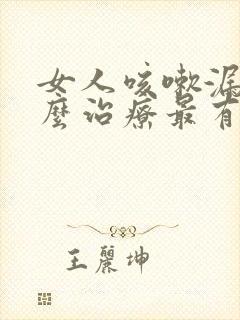 女人咳嗽漏
麼治療最有
王麗坤